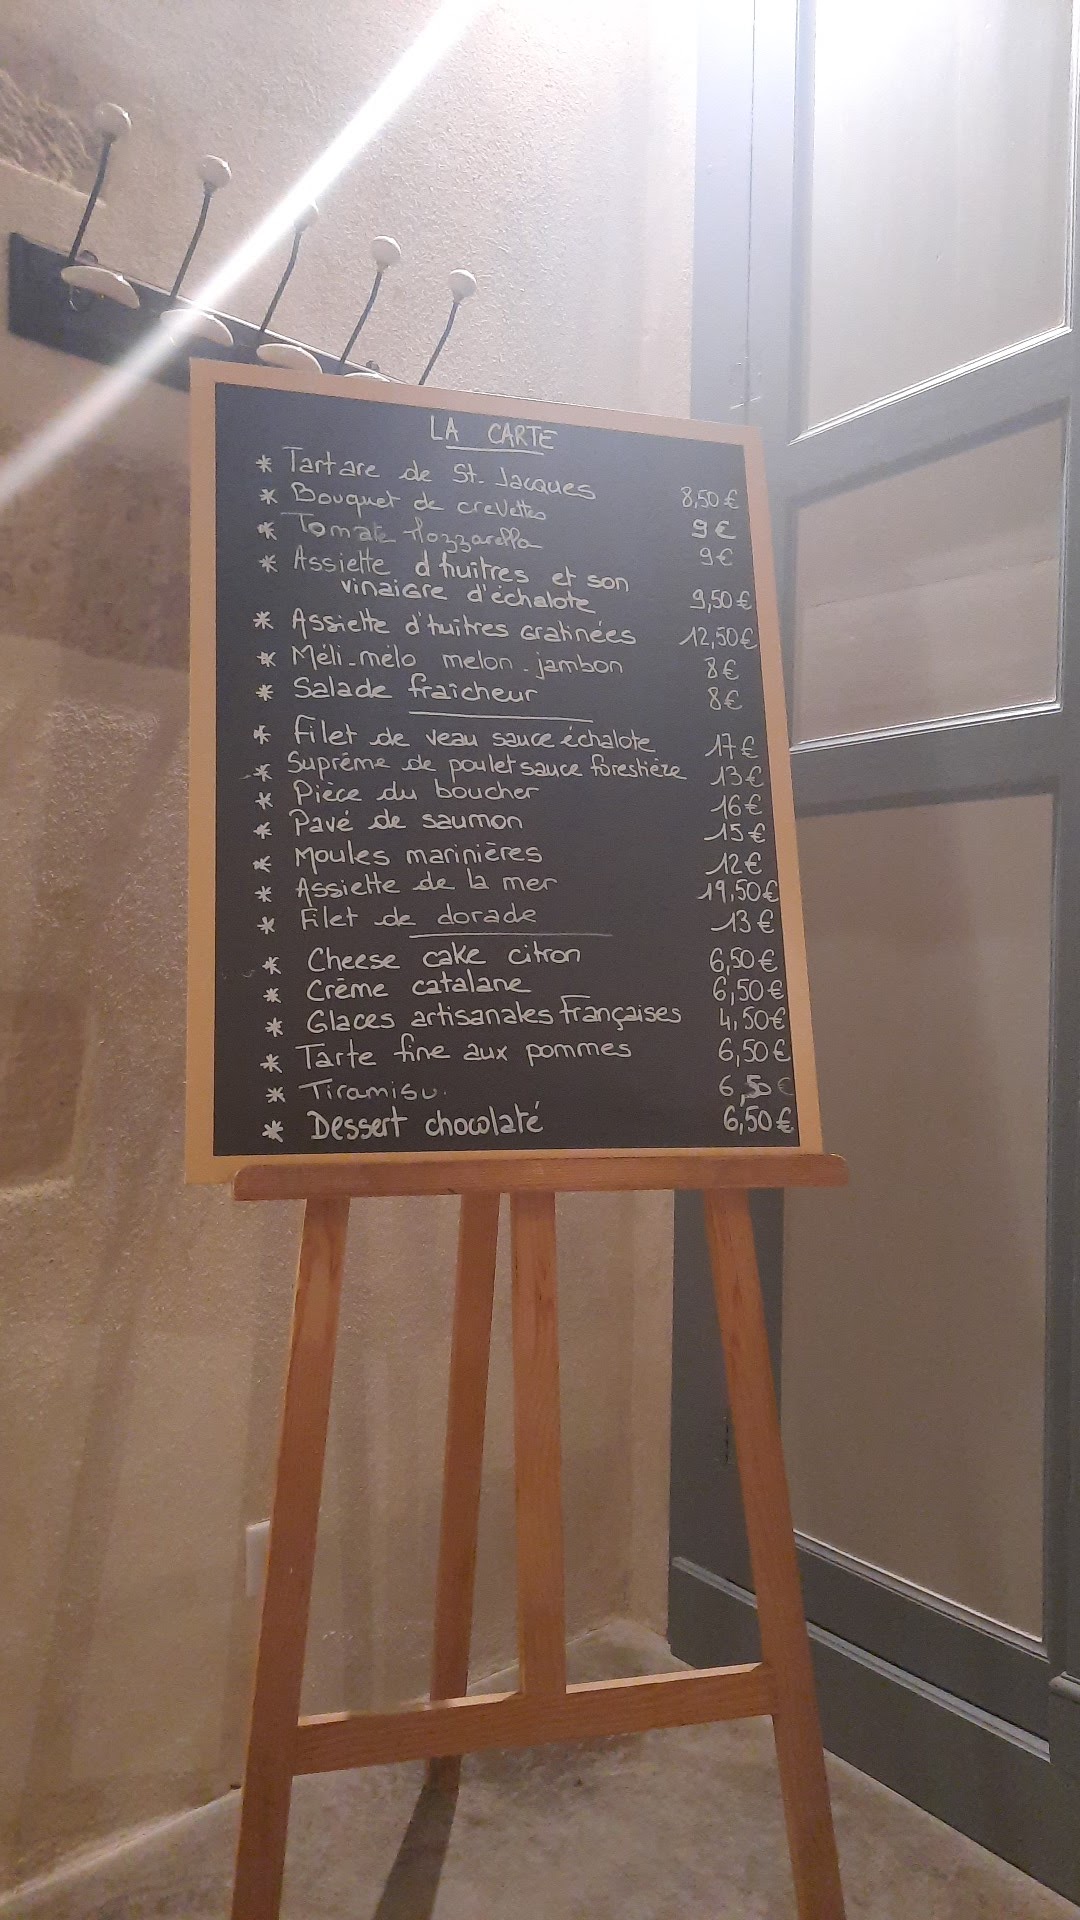 LA CARTE
* Tartare de St. Jacques 8,50 €
* Bouquet de crevettes 9 €
* Tomate Mozzarella 9 €
* Assiette d'huîtres et son
vinaigre d'échalote 9,50 €
* Assiette d'huîtres Gratinées 12,50 €
* Méli-mélo melon-jambon 8 €
* Salade fraîcheur 8 €
* Filet de veau sauce échalote 17 €
* Suprême de poulet sauce forestière 13 €
* Pièce du boucher 16 €
* Pavé de saumon 15 €
* Moules marinières 12 €
* Assiette de la mer 19,50 €
* Filet de dorade 13 €
* Cheese cake citron 6,50 €
* Crème catalane 6,50 €
* Glaces artisanales Françaises 4,50 €
* Tarte fine aux pommes 6,50 €
* Tiramisu. 6,50 €
* Dessert chocolaté 6,50 €